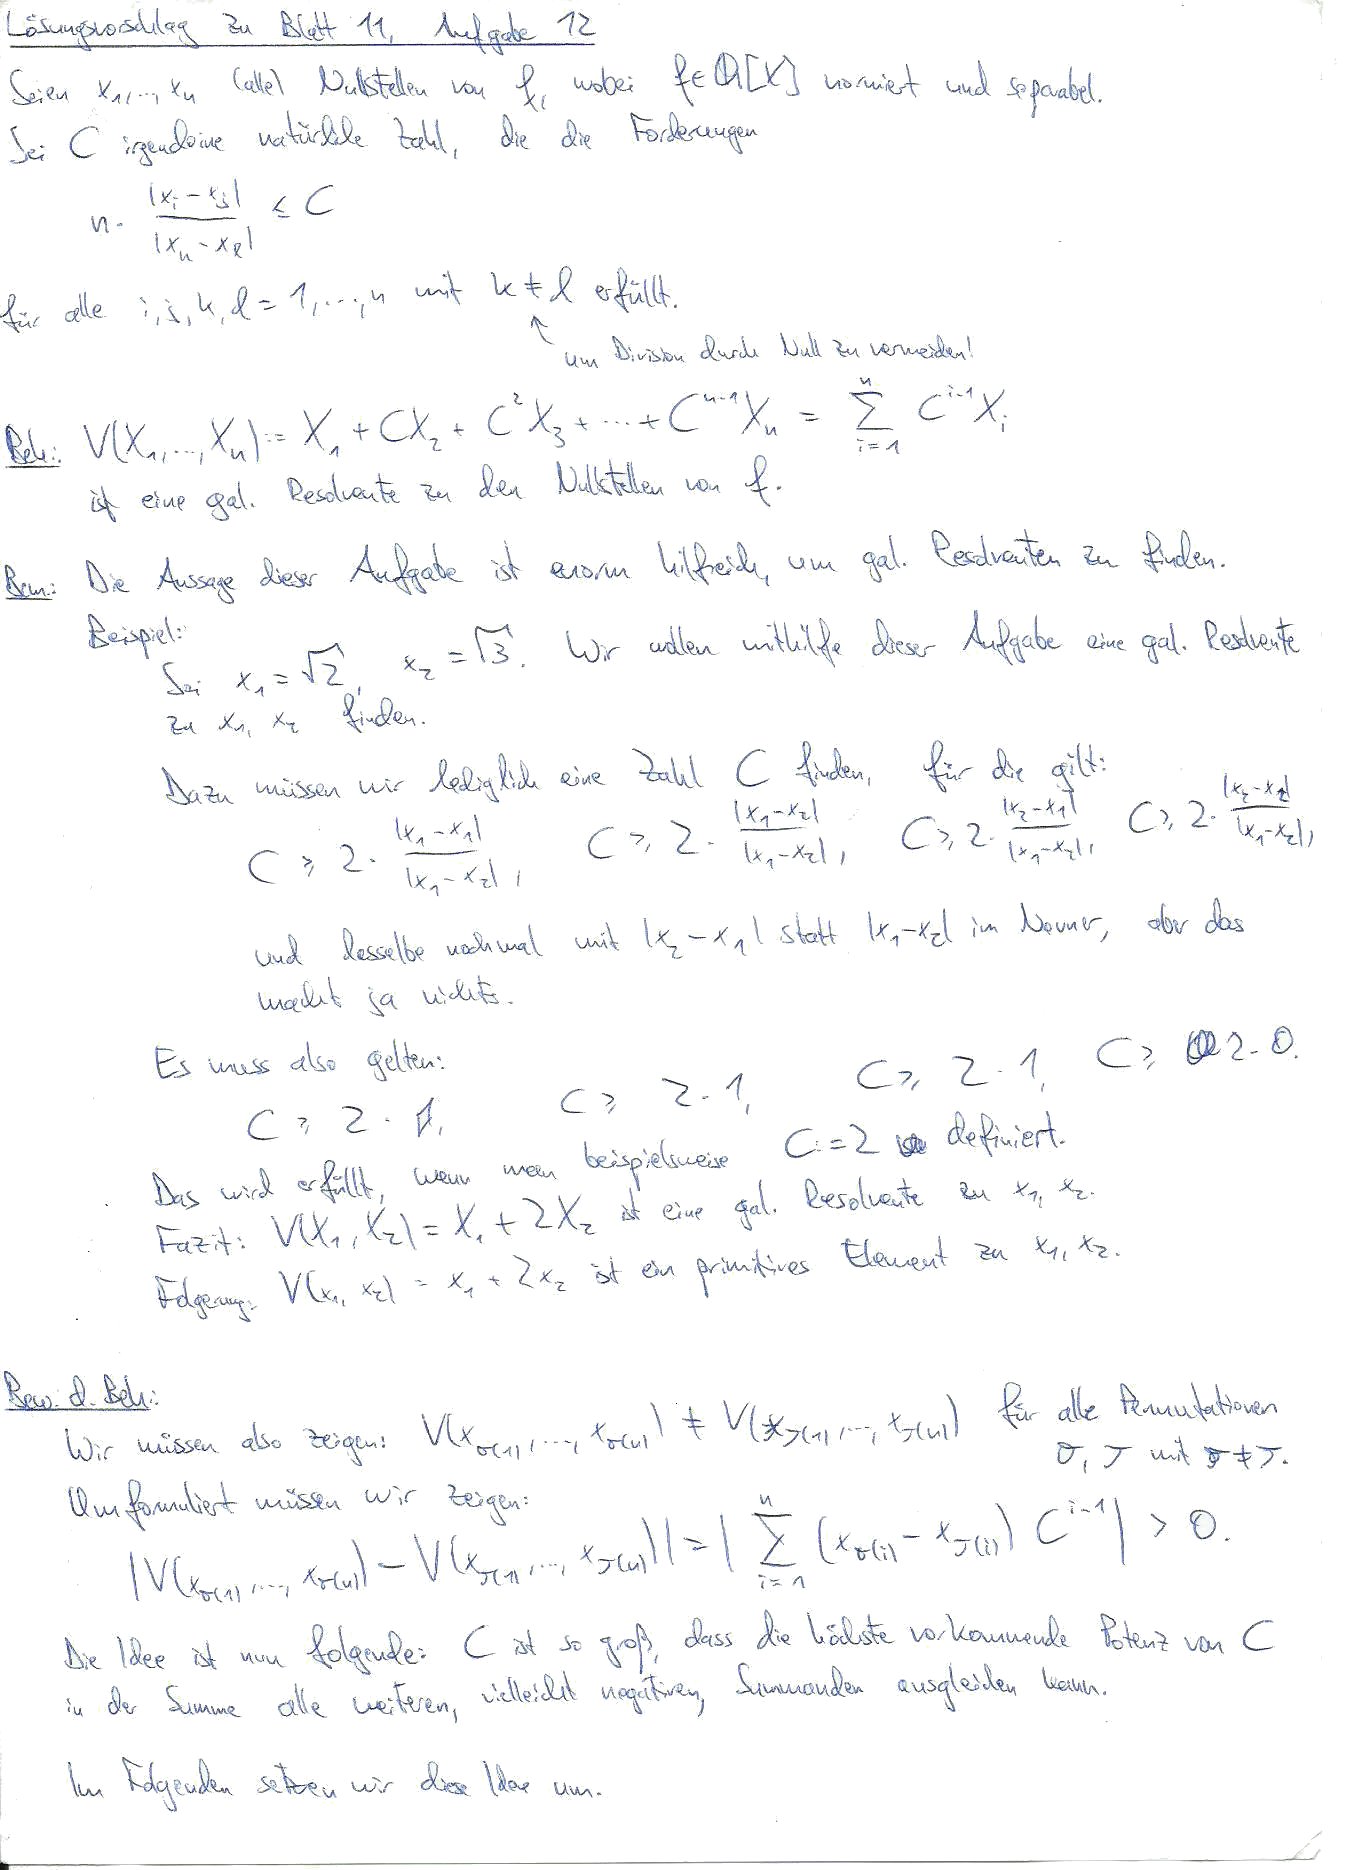 Lösungsvorschlag zu Blatt 11, Aufgabe 12
Seien x₁,..., xₙ (alle) Nullstellen von f, wobei f ∈ ℚ[X] normiert und separabel.
Sei C irgendeine natürliche Zahl, die die Forderungen
n · |xᵢ - xⱼ| / |xₖ - xₗ| ≤ C
für alle i, j, k, l = 1, ..., n mit k ≠ l erfüllt.
↑ um Division durch Null zu vermeiden!
Beh.: V(X₁,..., Xₙ) := X₁ + CX₂ + C²X₃ + ... + Cⁿ⁻¹Xₙ = ∑ᵢ₌₁ⁿ Cⁱ⁻¹Xᵢ
ist eine gal. Resolvente zu den Nullstellen von f.
Bem.: Die Aussage dieser Aufgabe ist enorm hilfreich, um gal. Resolventen zu finden.
Beispiel:
Sei x₁ = √2, x₂ = √3. Wir wollen mithilfe dieser Aufgabe eine gal. Resolvente
zu x₁, x₂ finden.
Dazu müssen wir lediglich eine Zahl C finden, für die gilt:
C ≥ 2 · |x₁ - x₁| / |x₁ - x₂|, C ≥ 2 · |x₁ - x₂| / |x₁ - x₂|, C ≥ 2 · |x₂ - x₁| / |x₁ - x₂|, C ≥ 2 · |x₂ - x₂| / |x₁ - x₂|,
und dasselbe nochmal mit |x₂ - x₁| statt |x₁ - x₂| im Nenner, aber das
macht ja nichts.
Es muss also gelten:
C ≥ 2 · 1, C ≥ 2 · 1, C ≥ 2 · 1, C ≥ 2 · 0.
Das wird erfüllt, wenn man beispielsweise C := 2 definiert.
Fazit: V(X₁, X₂) = X₁ + 2X₂ ist eine gal. Resolvente zu x₁, x₂.
Folgerung: V(x₁, x₂) = x₁ + 2x₂ ist ein primitives Element zu x₁, x₂.
Bew. d. Beh.:
Wir müssen also zeigen: V(x_σ(1), ..., x_σ(n)) ≠ V(x_τ(1), ..., x_τ(n)) für alle Permutationen
σ, τ mit σ ≠ τ.
Umformuliert müssen wir zeigen:
|V(x_σ(1), ..., x_σ(n)) - V(x_τ(1), ..., x_τ(n))| = |∑ᵢ₌₁ⁿ (x_σ(i) - x_τ(i)) Cⁱ⁻¹| > 0.
Die Idee ist nun folgende: C ist so groß, dass die höchste vorkommende Potenz von C
in der Summe alle weiteren, vielleicht negativen, Summanden ausgleichen kann.
Im Folgenden setzen wir diese Idee um.